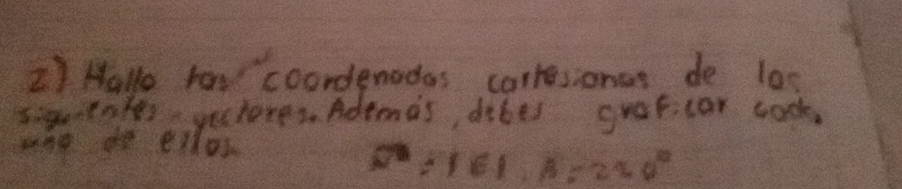 2) Hallo las coordenadas cartesianas de los
siguientes vectores. Además, debes graficar cada
uno de ellos.